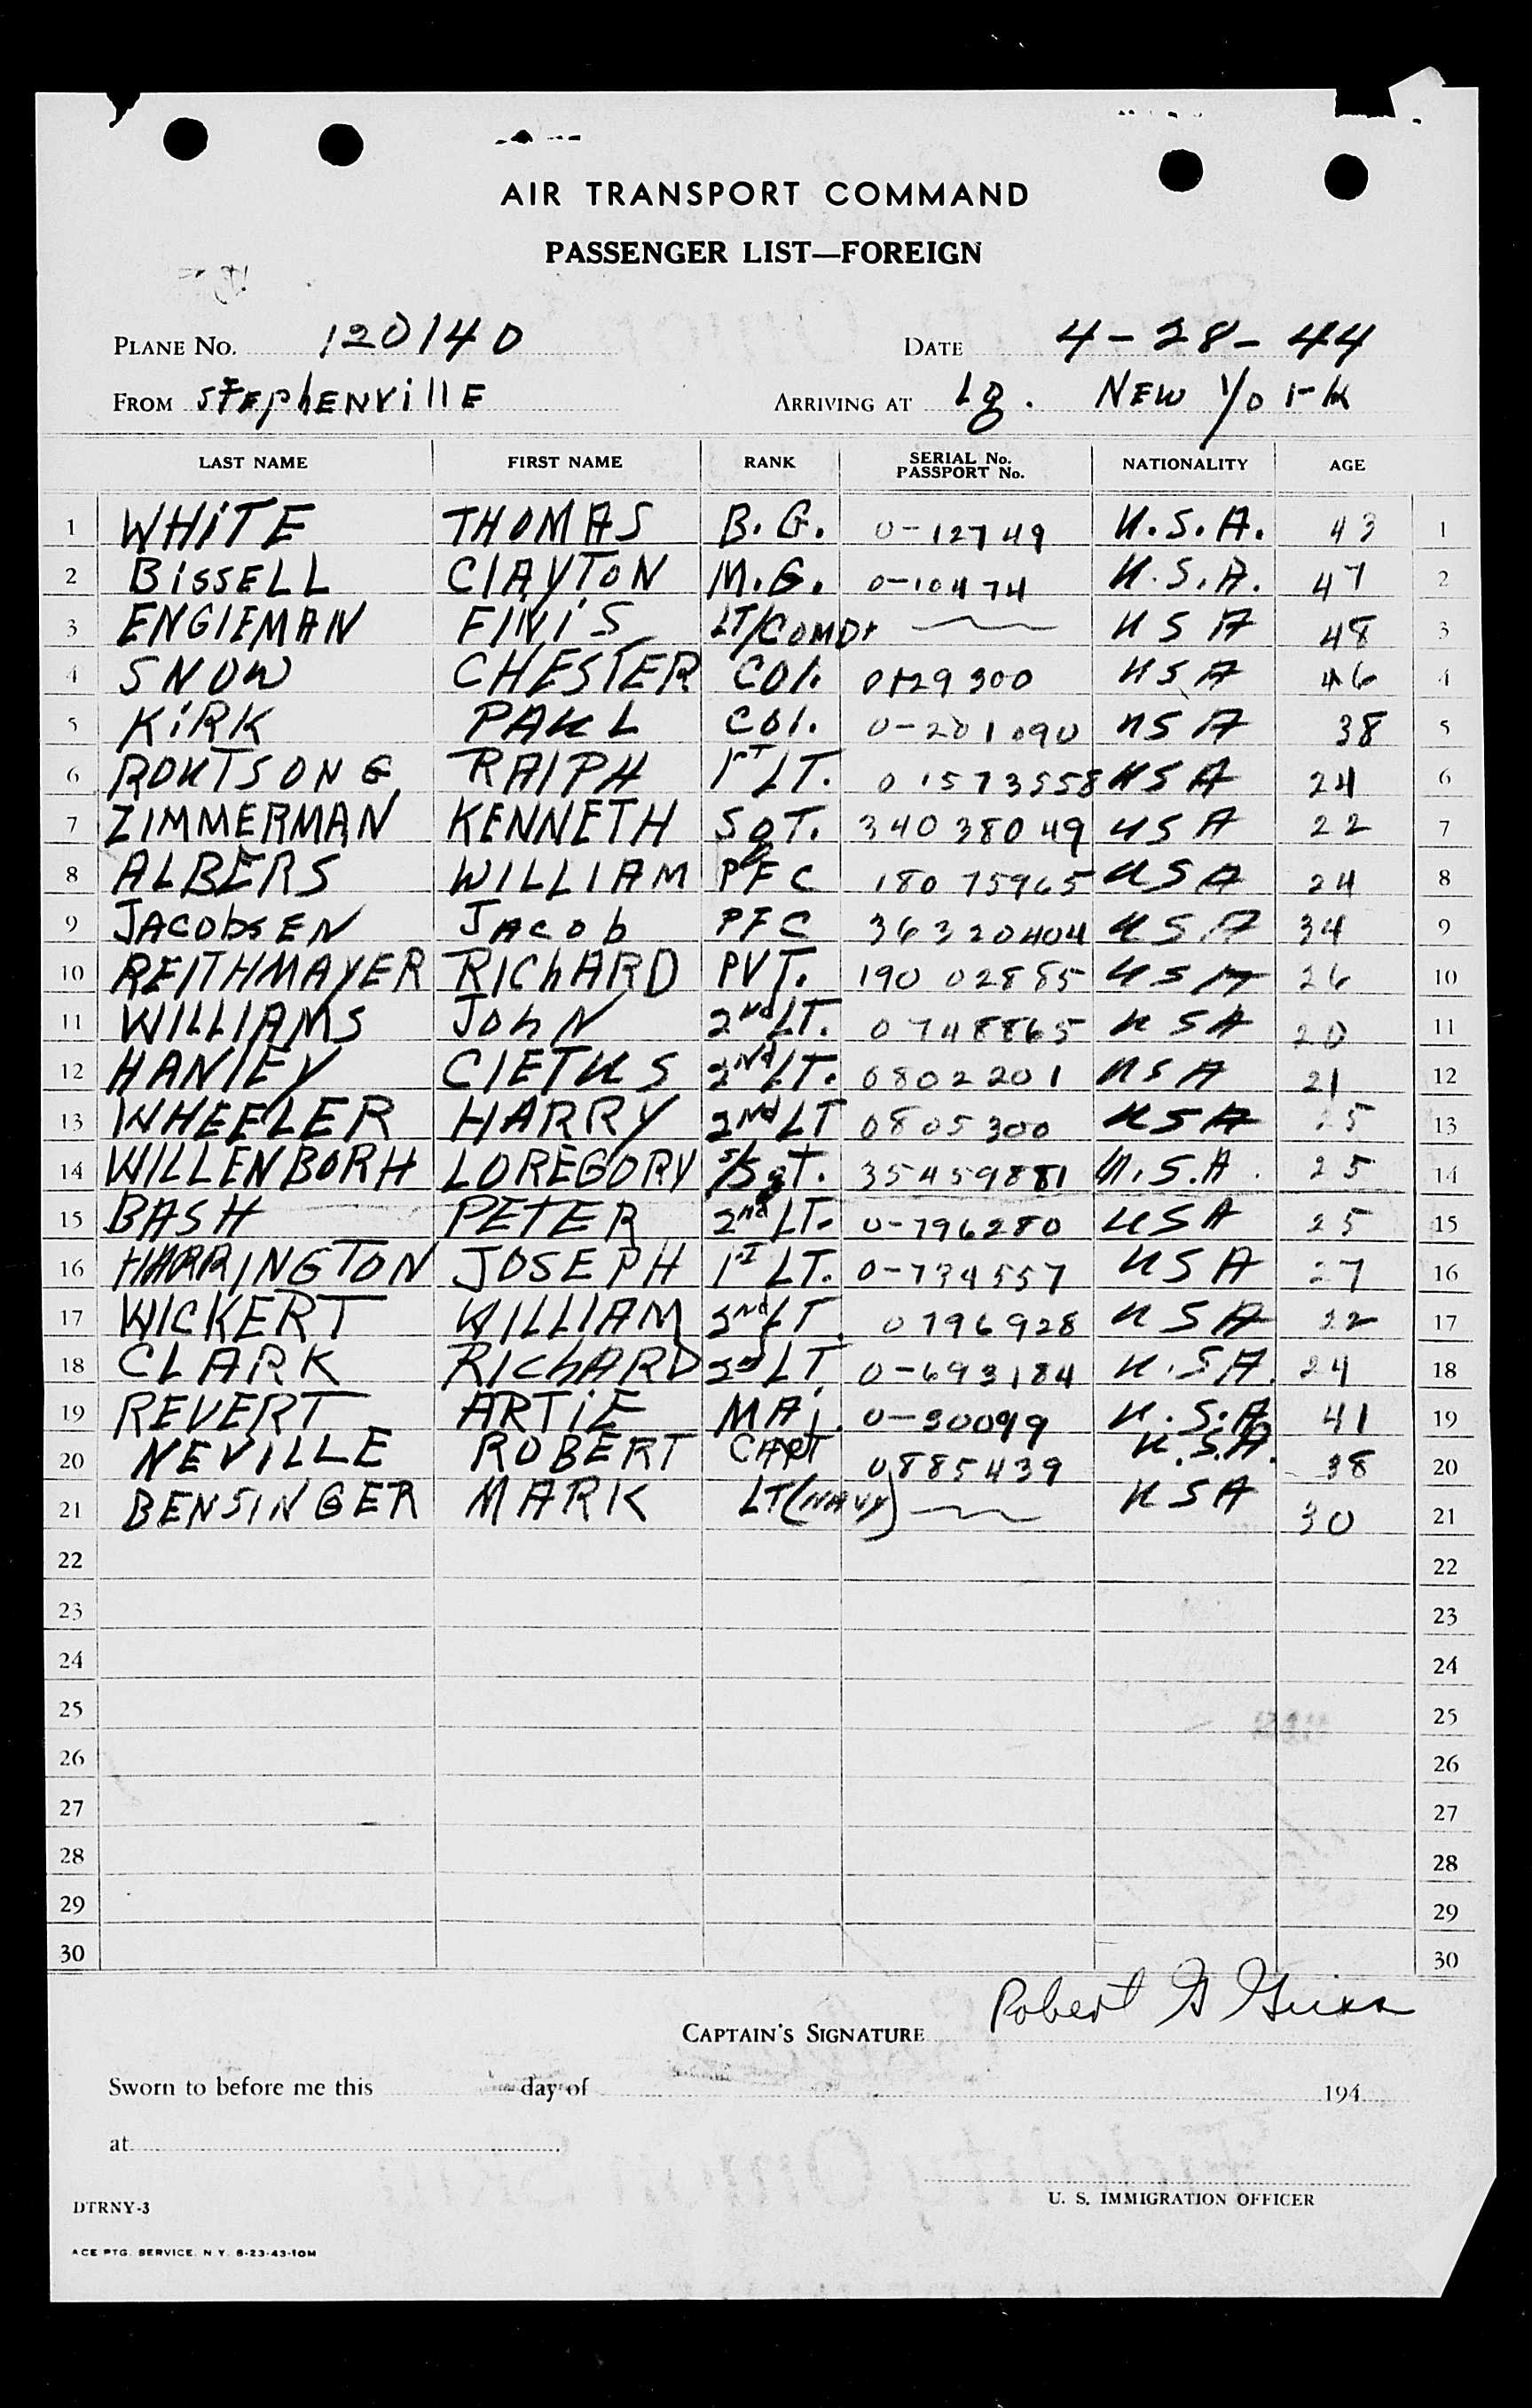 AIR TRANSPORT COMMAND
PASSENGER LIST—FOREIGN
PLANE No. 120140 DATE 4-28-44
FROM STEPHENVILLE ARRIVING AT Lg. NEW YORK
LAST NAME FIRST NAME RANK SERIAL No. PASSPORT No. NATIONALITY AGE
1 WHITE THOMAS B.G. 0-12749 U.S.A. 43 1
2 BISSELL CLAYTON M.G. 0-10474 U.S.A. 47 2
3 ENGLEMAN FINIS LT/COMDR USA 48 3
4 SNOW CHESTER COL. 0129300 USA 46 4
5 KIRK PAUL COL. 0-201090 USA 38 5
6 ROUTSONG RALPH 1ST LT. 01573558 USA 24 6
7 ZIMMERMAN KENNETH SgT. 34038049 USA 22 7
8 ALBERS WILLIAM PFC 18075965 USA 24 8
9 JACObSEN JACOb PFC 36320404 USA 34 9
10 REITHMAYER RIChARD PVT. 19002885 USA 26 10
11 WILLIAMS JOhN 2Nd LT. 0748865 USA 20 11
12 HANLEY CLETUS 2Nd LT. 0802201 USA 21 12
13 WHEELER HARRY 2Nd LT 0805300 USA 25 13
14 WILLENBORH LOREGORY S/SgT. 35459881 U.S.A. 25 14
15 BASH PETER 2nd LT. 0-796280 USA 25 15
16 HARRINGTON JOSEPH 1ST LT. 0-734557 USA 27 16
17 WICKERT WILLIAM 2nd LT. 0796928 USA 22 17
18 CLARK RIChARD 2nd LT. 0-693184 U.S.A. 24 18
19 REVERT ARTIE MAj. 0-30099 U.S.A. 41 19
20 NEVILLE ROBERT CAPT 0885439 U.S.A. 38 20
21 BENSINGER MARK LT(NAVY) USA 30 21
22 22
23 23
24 24
25 25
26 26
27 27
28 28
29 29
30 30
CAPTAIN'S SIGNATURE Robert G
Sworn to before me this day of 194
at
U. S. IMMIGRATION OFFICER
DTRNY-3
ACE PTG. SERVICE. N Y. 8-23-43-10M